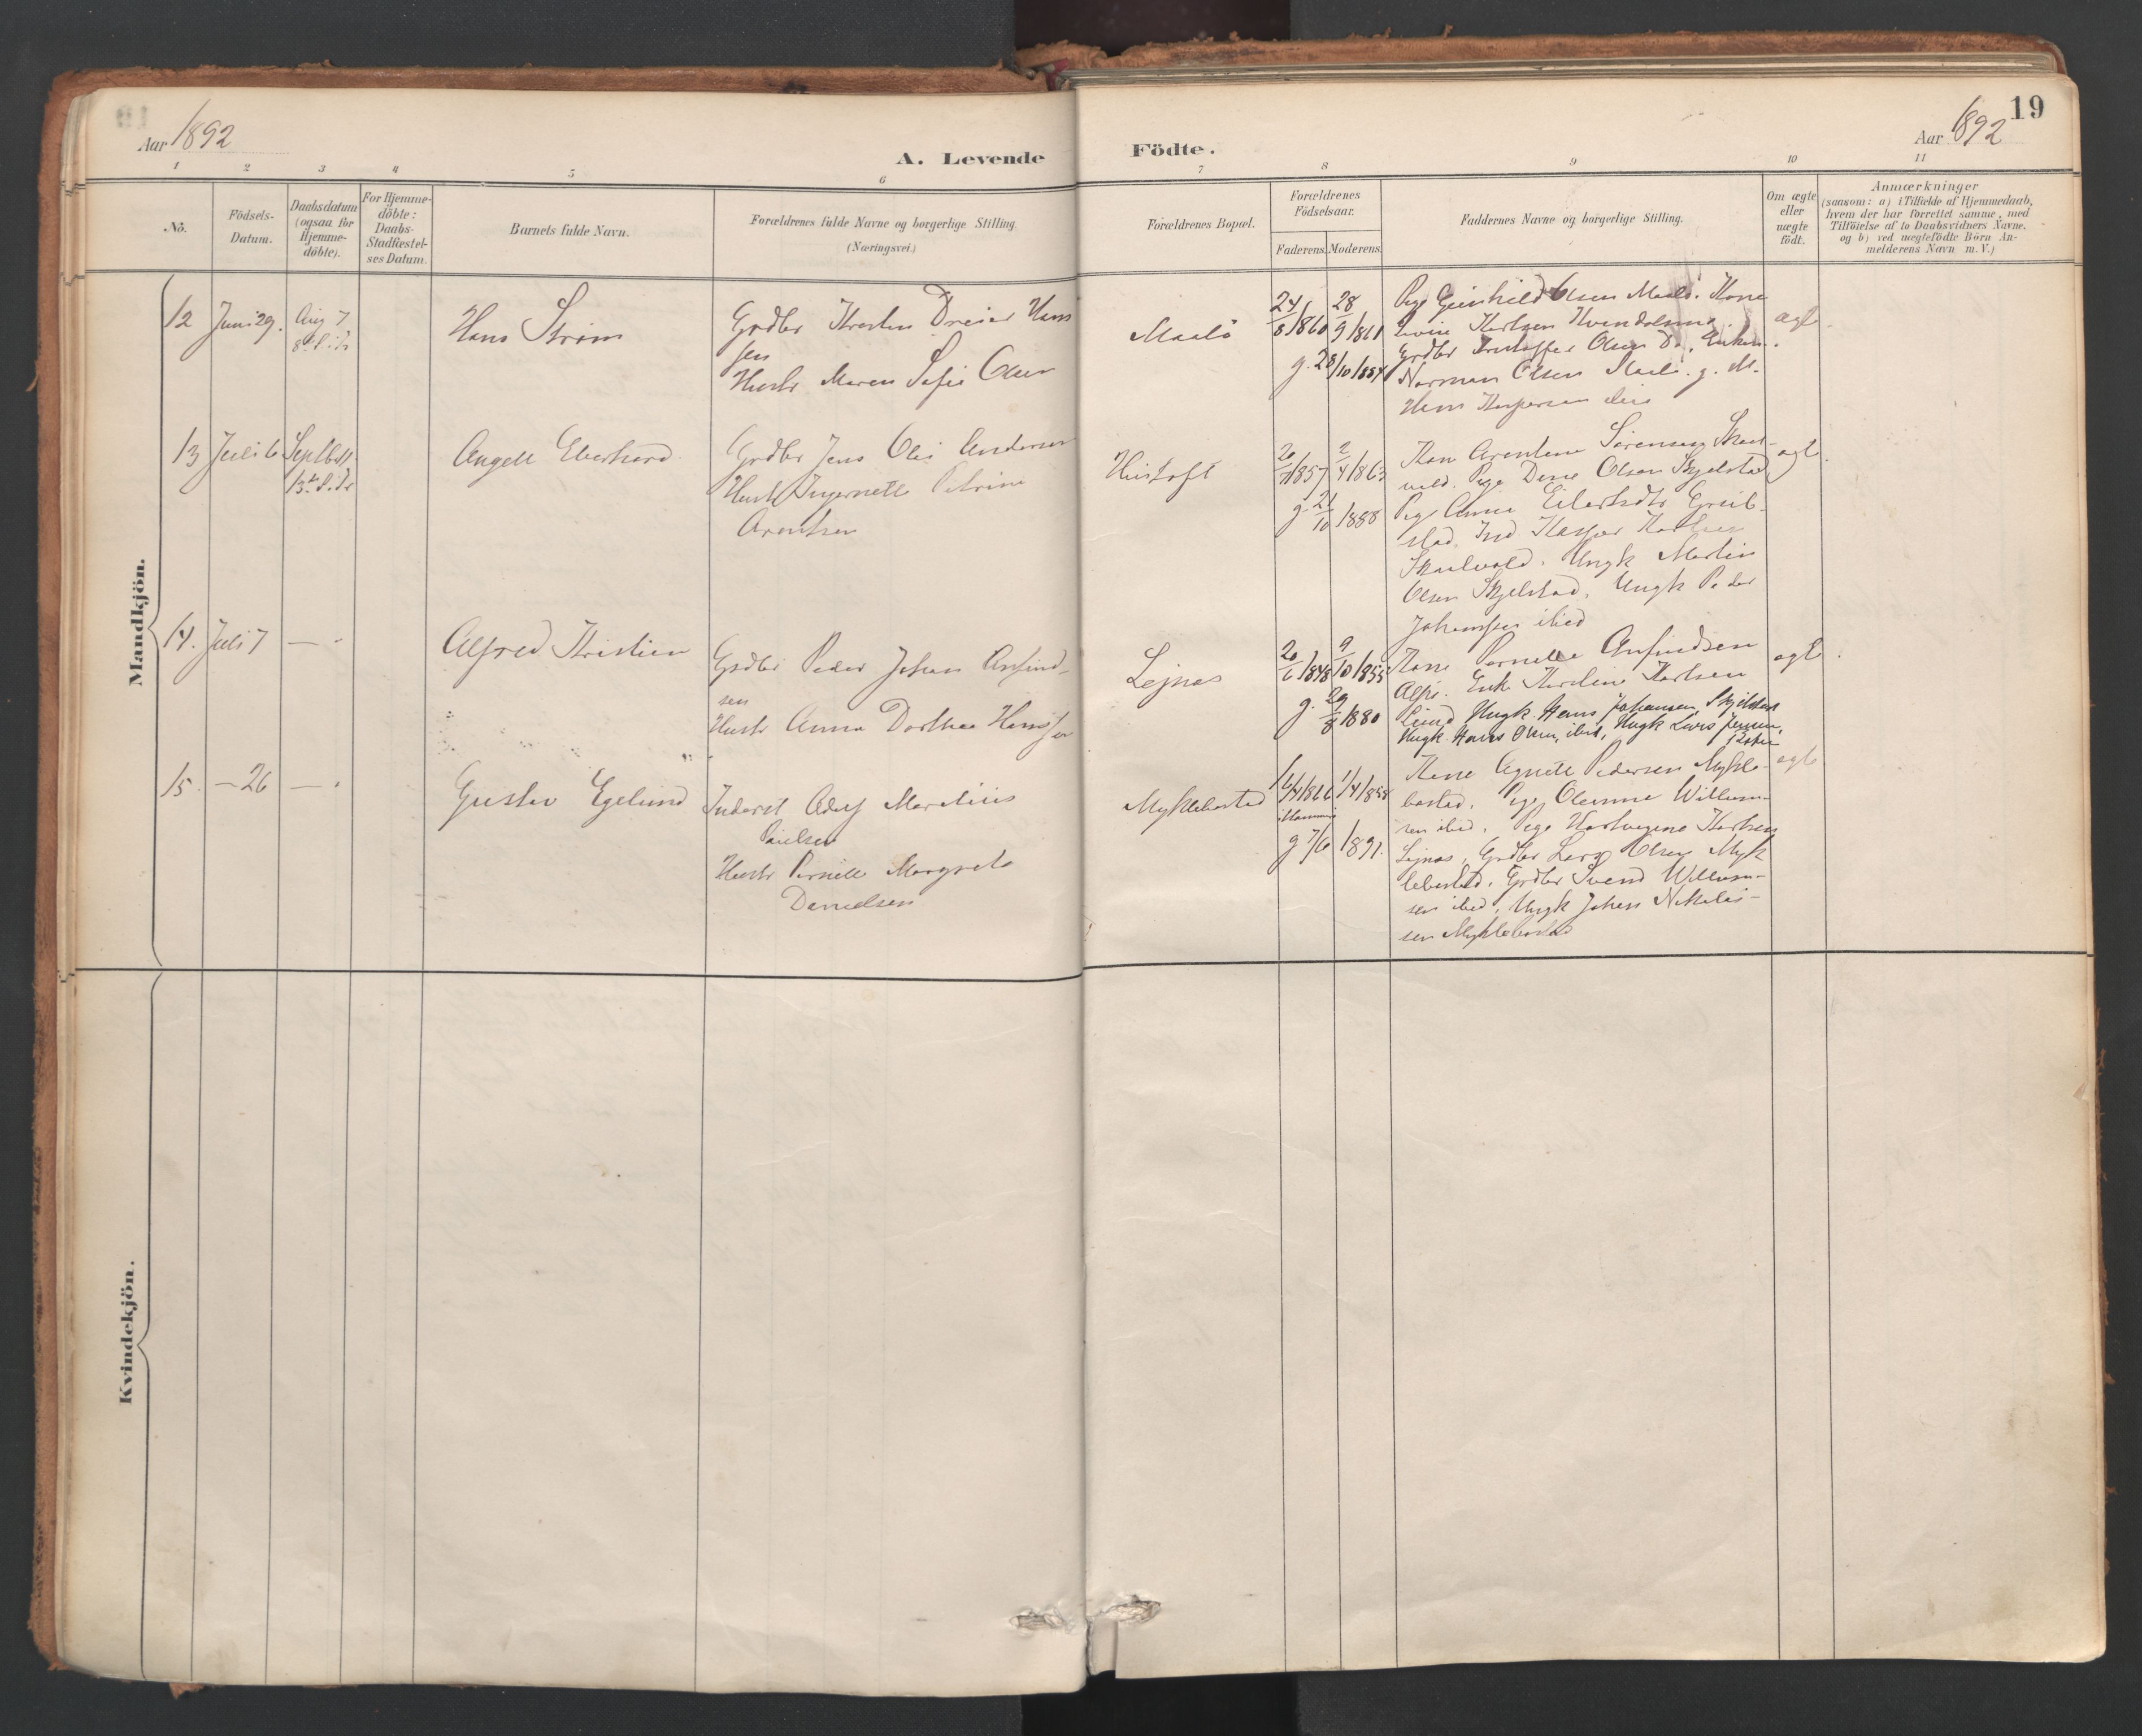 19
Aar 1892
A. Levende Födte.
Aar 1892
1 2 3 4 5 6 7 8 9 10 11
No.
Födsels-Datum.
Daabsdatum (ogsaa for Hjemme-döbte).
For Hjemme-döbte: Daabs-Stadfæstel-ses Datum.
Barnets fulde Navn.
Forældrenes fulde Navne og borgerlige Stilling
(Næringsvei.)
Forældrenes Bopæl.
Forældrenes Födselsaar.
Faderens. Moderens.
Faddernes Navne og borgerlige Stilling.
Om ægte eller uægte födt.
Anmærkninger
(saasom: a) i Tilfælde af Hjemmedaab,
hvem der har forrettet samme, med
Tilföielse af to Daabsvidners Navne,
og b) ved uægtefödte Börn An-
melderens Navn m.V.)
Mandkjön.
12 Juni 29. Aug 7
Hans Ström
Grdbr Kresten Dreier Hans
sen
Hustr Maren Sofie Olsen
Maalö
24/8 1860 28/9 1861
g. 28/10 1884
Pige Gunhild Olsen Maalö. Kone
Karlsen
Grdbr Kristoffer Olsen
Olsen
Hans
ægte
13 Juli 6 Septbr 11
Angell Eberhard
Grdbr Jens Olai Andersen
Hustr Ingernette Petrine
Arentsen
Hustoft
20/7 1857 2/4 1863
g. 21/10 1888
Kone Arentine Sörensen
Pige Dine Olsen Skjelstad
Pige Anna
Ind. Kasper
Ungk Martin
Olsen Skjelstad, Ungk Peder
Johansen ibid
ægte.
14. Juli 7 —
Alfred Kristian
Grdbr Peder Johan Anfind-
sen
Hustr Anna Dorthea Hansen
Lejnæs
20/6 1848 9/10 1855
g. 29/8 1880
Kone Pernelle Anfindsen
Enk Karoline Karlsen
Ungk. Hans Johansen, Skjelstad
Ungk. Hans Olsen, ibid, Ungk Lars Jensen,
ægte.
15. — 26 —
Gustav Egelund
Inderst Adolf Marelius
Paulsen
Hustr Pernille Margrete
Danielsen
Myklebostad
16/4 1866 1/4 1858
g 7/6 1891.
Kone Agnete Pedersen Mykle-
bostad. Pige Oleanna Willum-
sen ibid, Pige Karlsen
Lejnæs, Grdbr Lars Olsen Myk
lebostad. Grdbr Svend Willum-
sen ibid, Ungk Johan Nikolai-
sen Myklebostad
ægte
Kvindekjön.